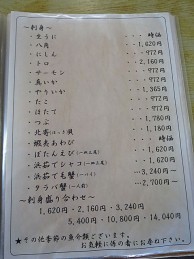 ～刺身～
・生うに ・・・ 時価
・八角 ・・・ 1,620円
・にしん ・・・ 972円
・トロ ・・・ 2,160円
・サーモン ・・・ 972円
・真いか ・・・ 972円
・やりいか ・・・ 1,365円
・たこ ・・・ 972円
・ほたて ・・・ 972円
・つぶ ・・・ 1,180円
・北寄 ・・・ 1,620円
・蝦夷あわび ・・・ 時価
・ぼたんえび ・・・ 1,620円
・浜茹でシャコ ・・・ 1,620円
・浜茹で毛蟹 ・・・3,240円～
・タラバ蟹 ・・・2,700円
～刺身盛り合わせ～
1,620円・2,160円・3,240円
5,400円・10,800円・14,040円
★その他季節の魚介類ございます。
お気軽に係の者にお尋ね下さい。